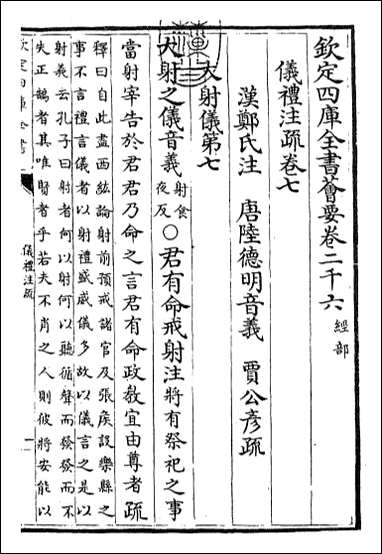 欽定四庫全書薈要卷二千六 經部
儀禮注疏卷七
漢鄭氏注 唐陸德明音義 賈公彥疏
大射儀第七
大射之儀音義射食夜反○君有命戒射注將有祭祀之事
當射宰告於君君乃命之言君有命政教宜由尊者疏
釋曰自此盡西紘論射前預戒諸官及張侯設樂縣之
事不言禮言儀者以射禮盛威儀多故以儀言之是以
射義云孔子曰射者何以射何以聽循聲而發發而不
失正鵠者其唯賢者乎若夫不肖之人則彼將安能以
欽定四庫全書
儀禮注疏